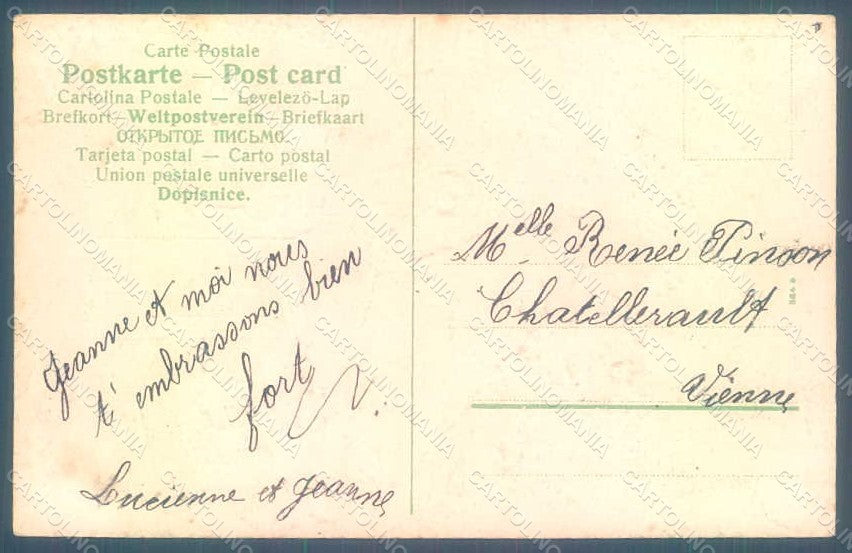 Carte Postale
Postkarte — Post card
Cartolina Postale — Levelező-Lap
Brefkort—Weltpostverein—Briefkaart
ОТКРЫТОЕ ПИСЬМО.
Tarjeta postal — Carto postal
Union postale universelle
Dopisnice.
Jeanne et moi nous
t'embrassons bien
fort
Lucienne et Jeanne
Melle Renée Pinson
Chatellerault
Vienne
CARTOLINOMANIA